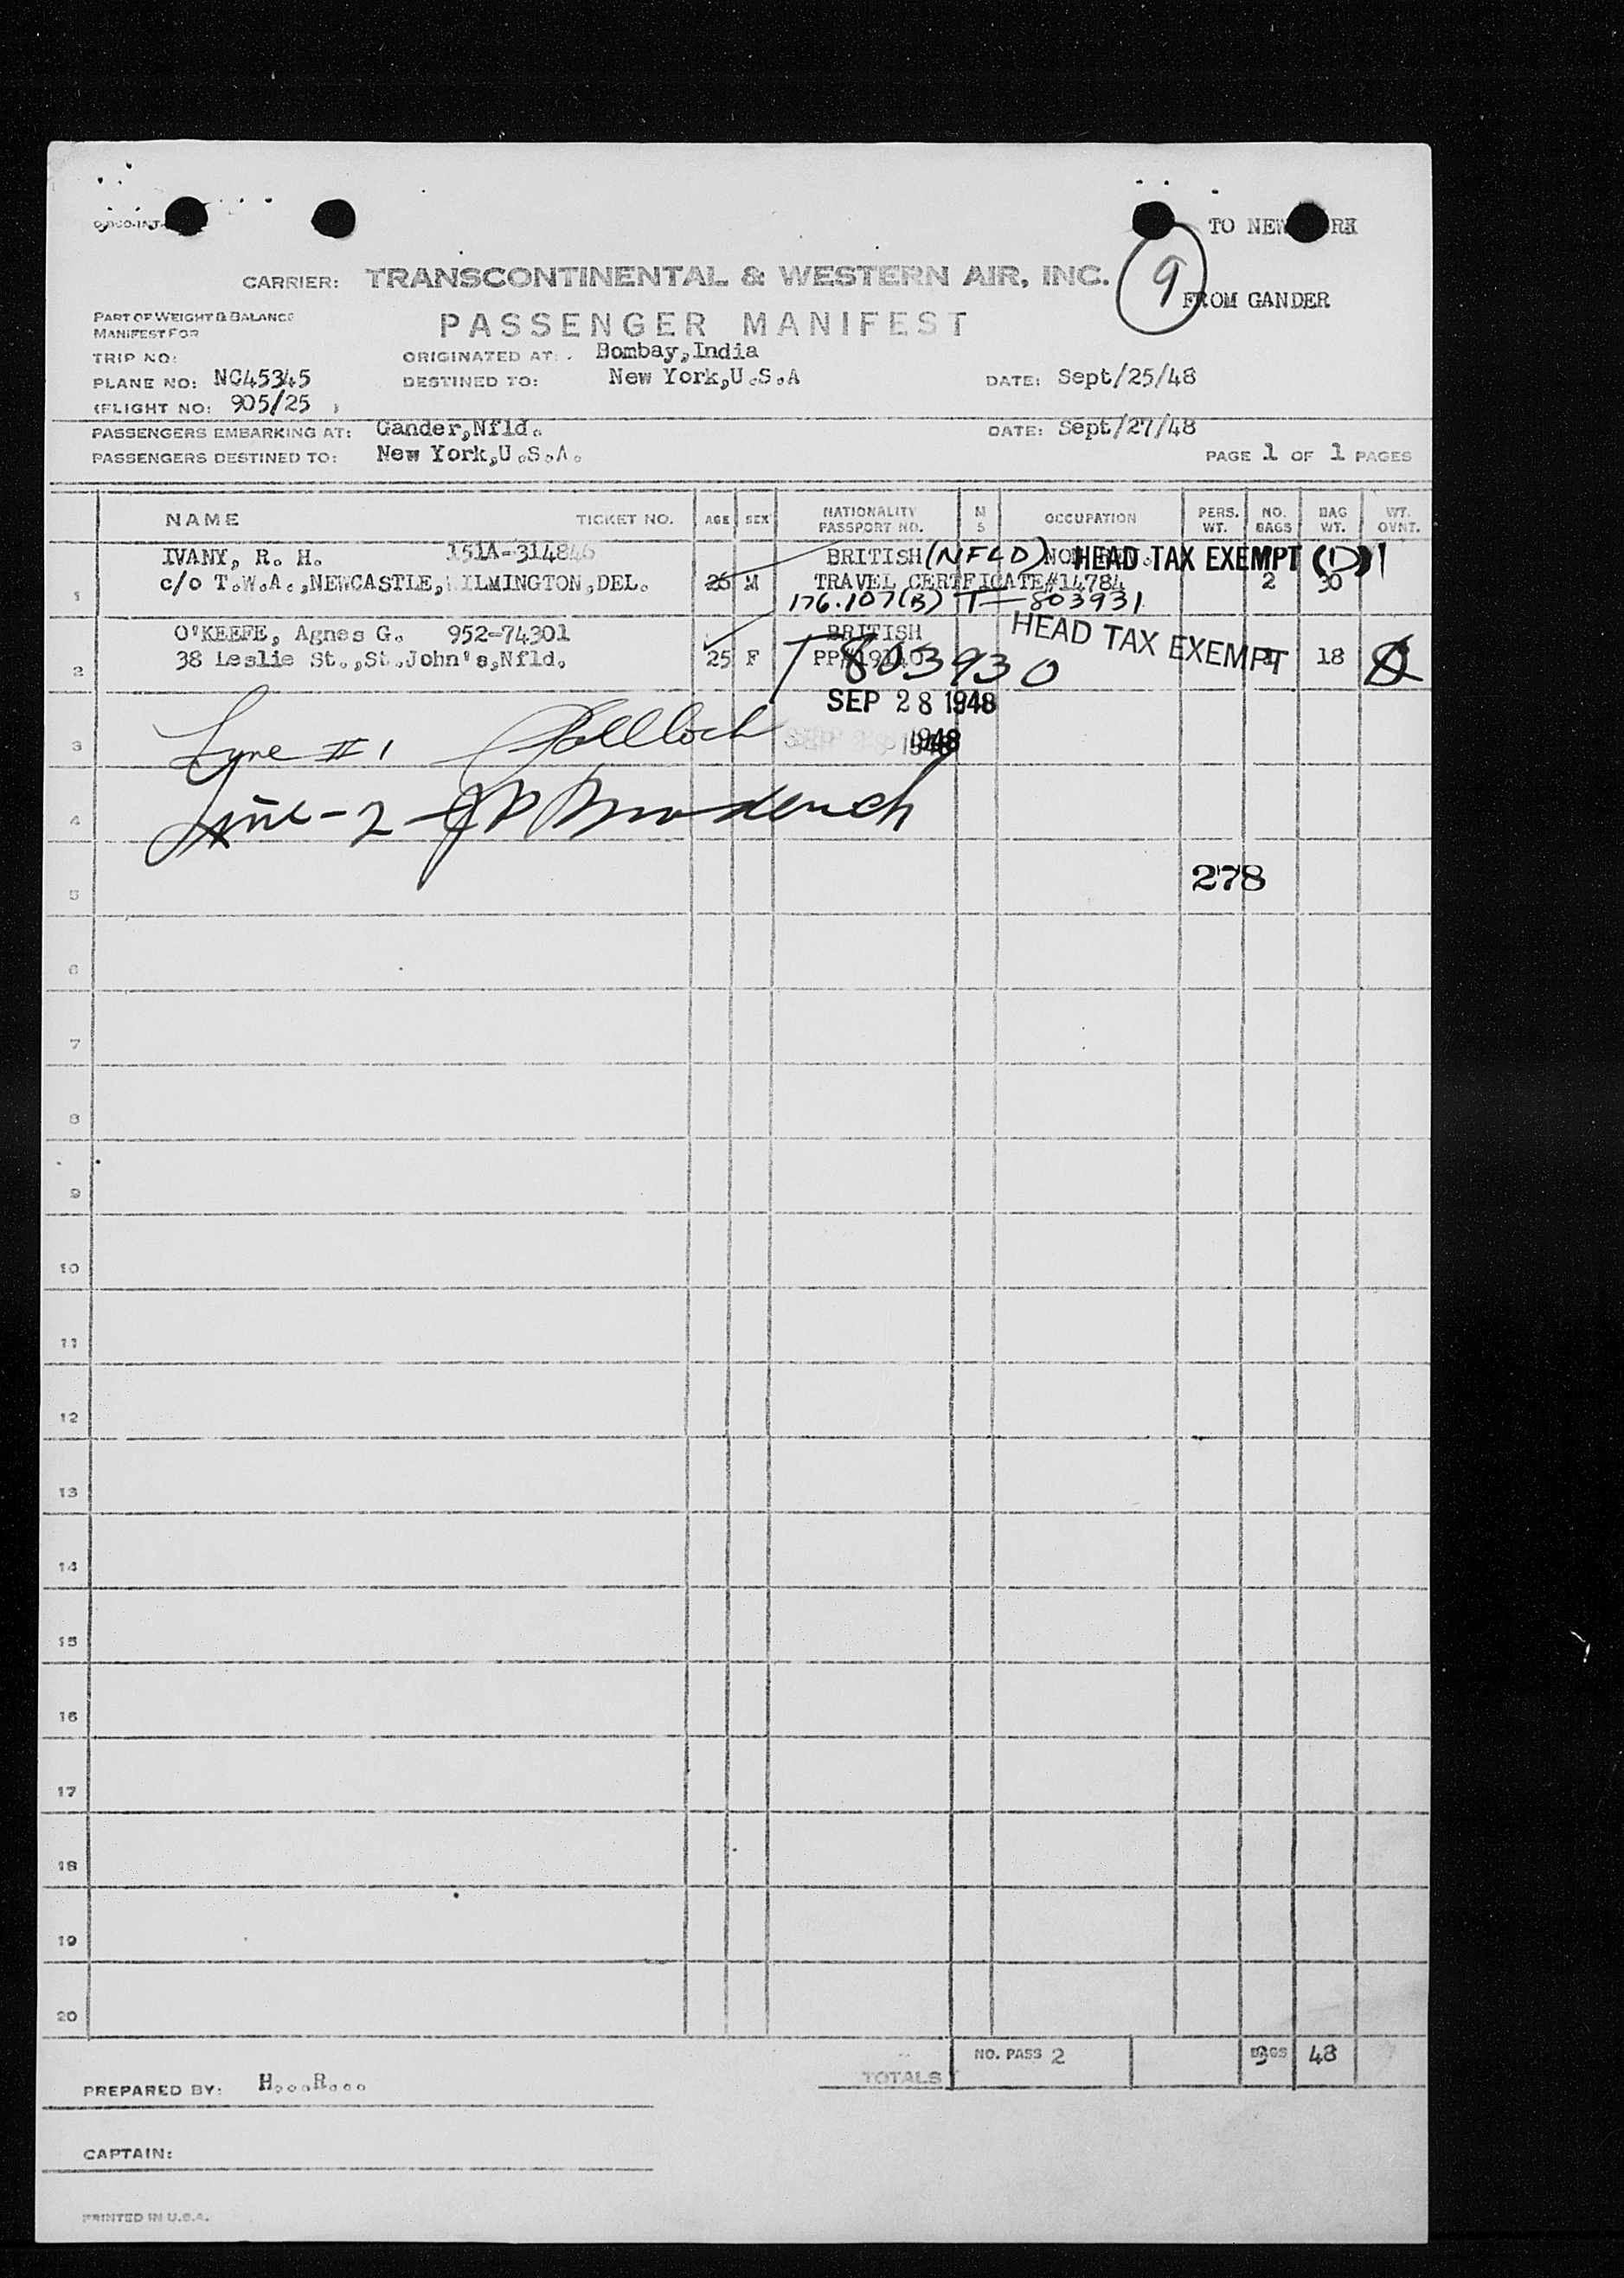 TO NEW YORK
9
FROM GANDER
CARRIER: TRANSCONTINENTAL & WESTERN AIR, INC.
PART OF WEIGHT & BALANCE
MANIFEST FOR
PASSENGER MANIFEST
TRIP NO:
ORIGINATED AT: Bombay,India
PLANE NO: NC45345
DESTINED TO: New York,U.S.A
DATE: Sept/25/48
(FLIGHT NO: 905/25 )
PASSENGERS EMBARKING AT: Gander,Nfld.
DATE: Sept/27/48
PASSENGERS DESTINED TO: New York,U.S.A.
PAGE 1 OF 1 PAGES
NAME TICKET NO. AGE SEX NATIONALITY PASSPORT NO. M S OCCUPATION PERS. WT. NO. BAGS BAG WT. WT. OVNT.
IVANY, R. H. 151A-314846 BRITISH (NFLD) HEAD TAX EXEMPT (1)
1 c/o T.W.A.,NEWCASTLE,WILMINGTON,DEL. 26 M TRAVEL CERTFICATE#14784 2 30
176.107(B) T-803931
O'KEEFE, Agnes G. 952-74301 BRITISH HEAD TAX EXEMPT
2 38 Leslie St.,St.John's,Nfld. 25 F 1 18
T 803930
SEP 28 1948
3 Lyne #1
1948
4 Line - 2
278
5
6
7
8
9
10
11
12
13
14
15
16
17
18
19
20
TOTALS NO. PASS 2 BAGS 3 48
PREPARED BY: H...R...
CAPTAIN:
PRINTED IN U.S.A.